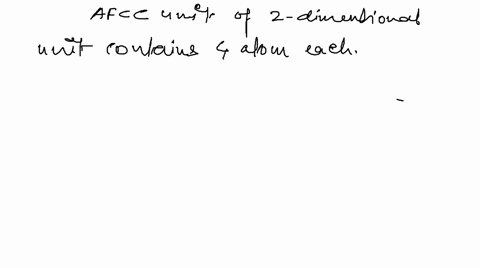 A FCC unit of 2-dimentional
unit contains 4 atom each.